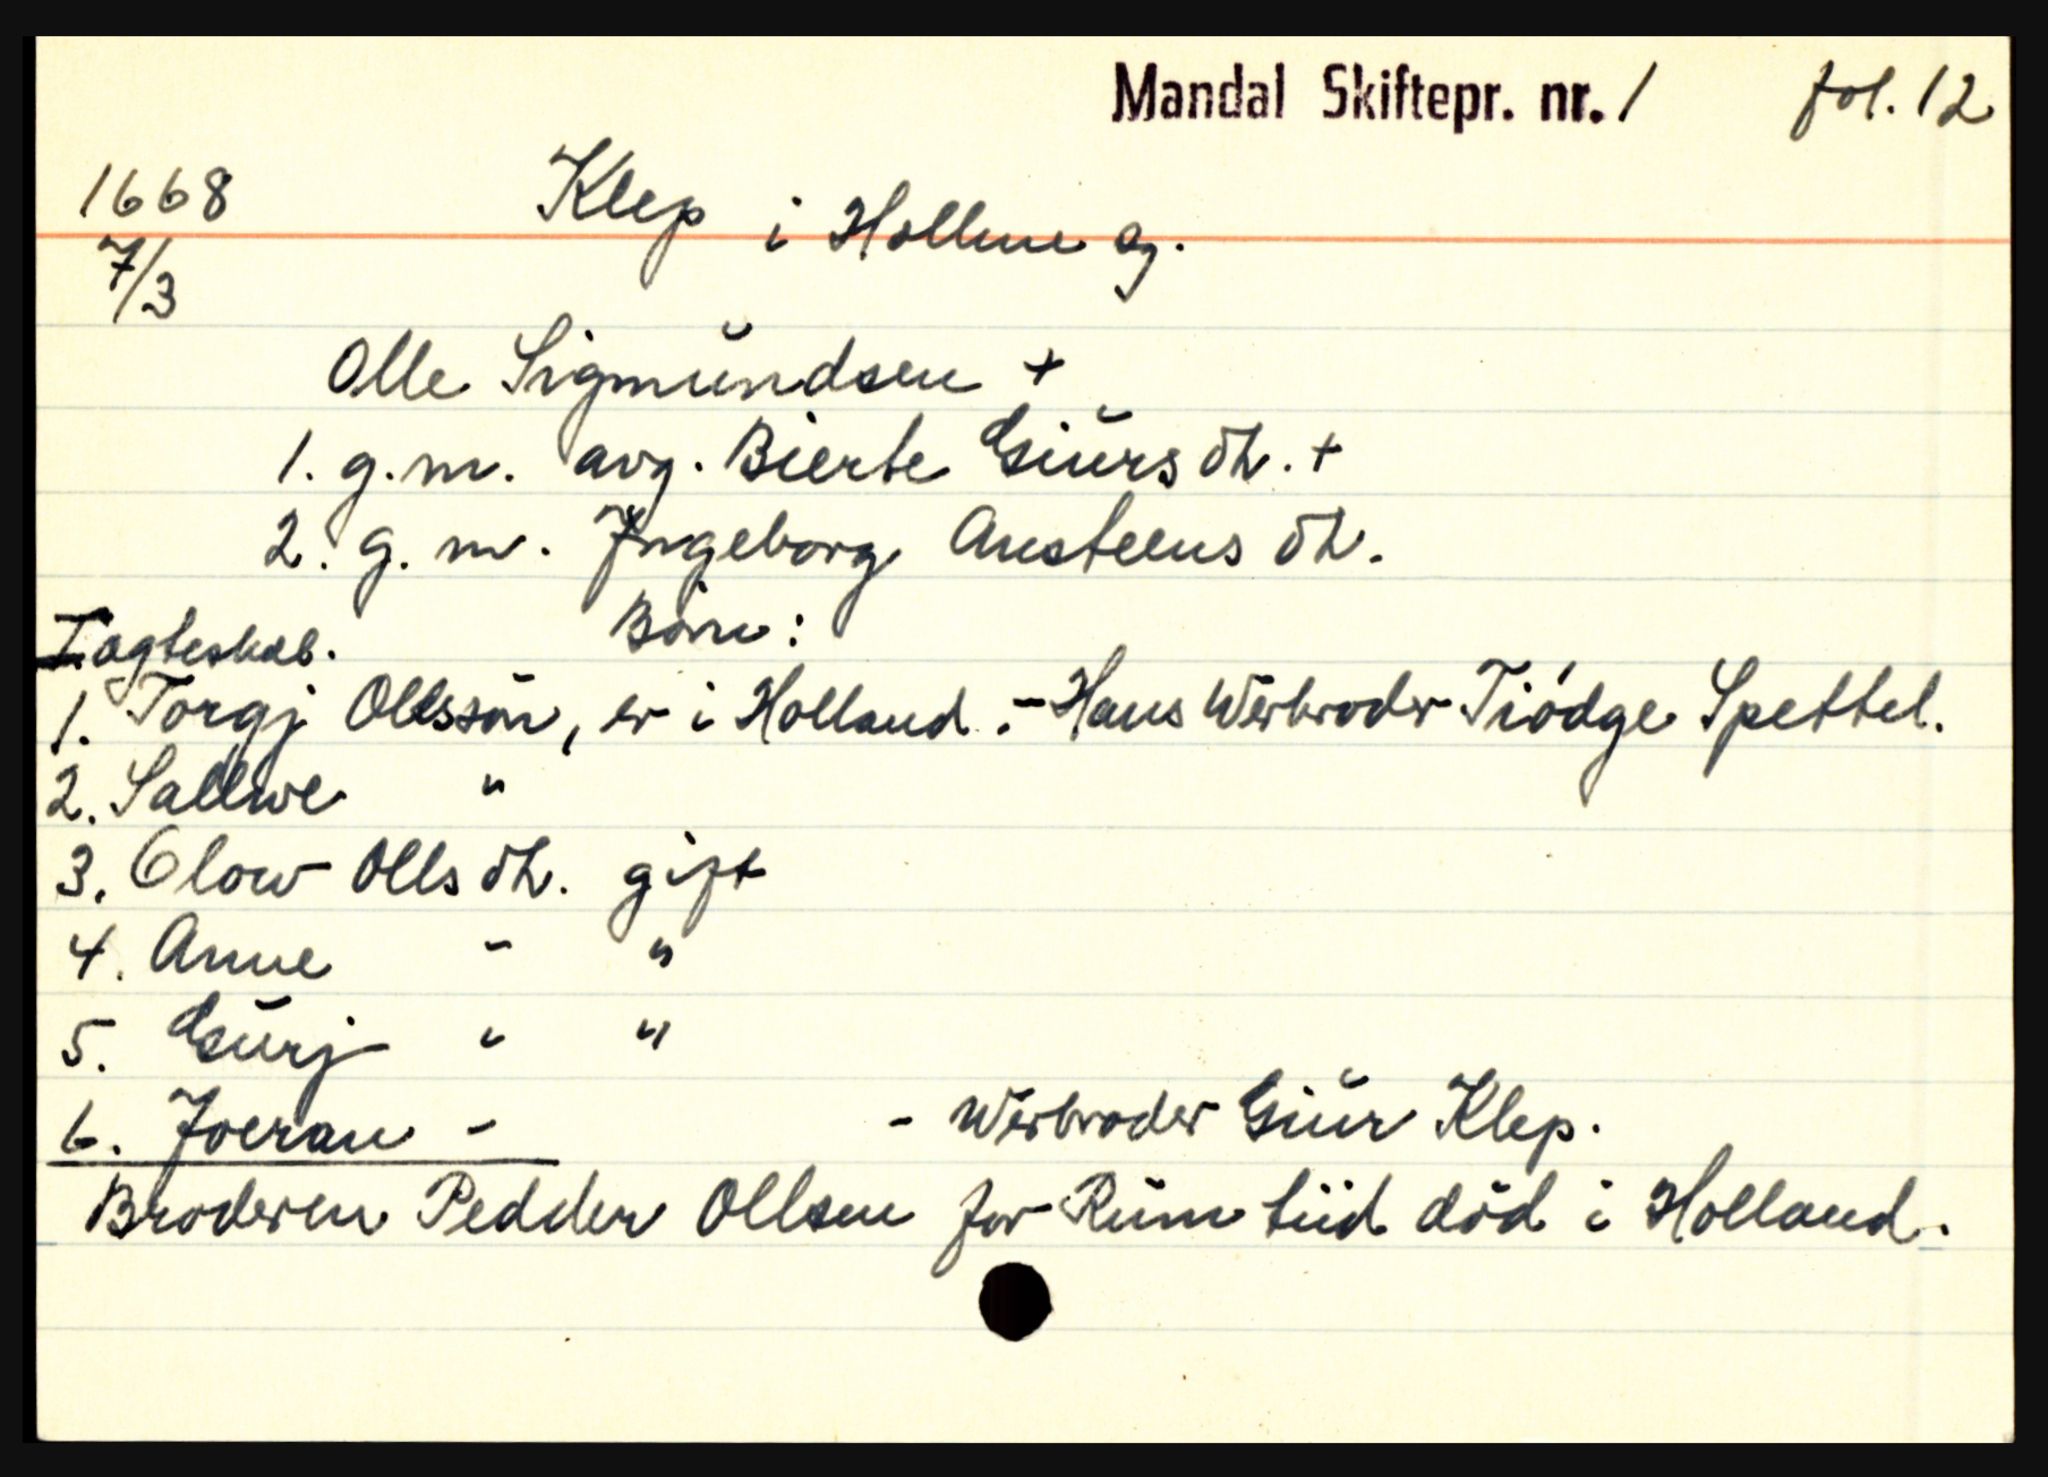 Mandal Skiftepr. nr. 1 fol. 12
1668 Klep i Hollme sg.
7/3
Olle Sigmŭndsen +
1. g.m. avg. Bierte Giŭrs dtr. +
2. g.m. Ingeborg Austeens dtr.
I ægteskab. Börn:
1. Torgj Ollssön, er i Holland. - Hans Werbroder Tiødge Spettel.
2. Sallwe "
3. Olow Olls dtr. gift
4. Anne - "
5. Gŭrj " "
6. Joeran - - Werbroder Giŭr Klep.
Broderen Pedder Ollsen for Rŭm tiid död i Holland.